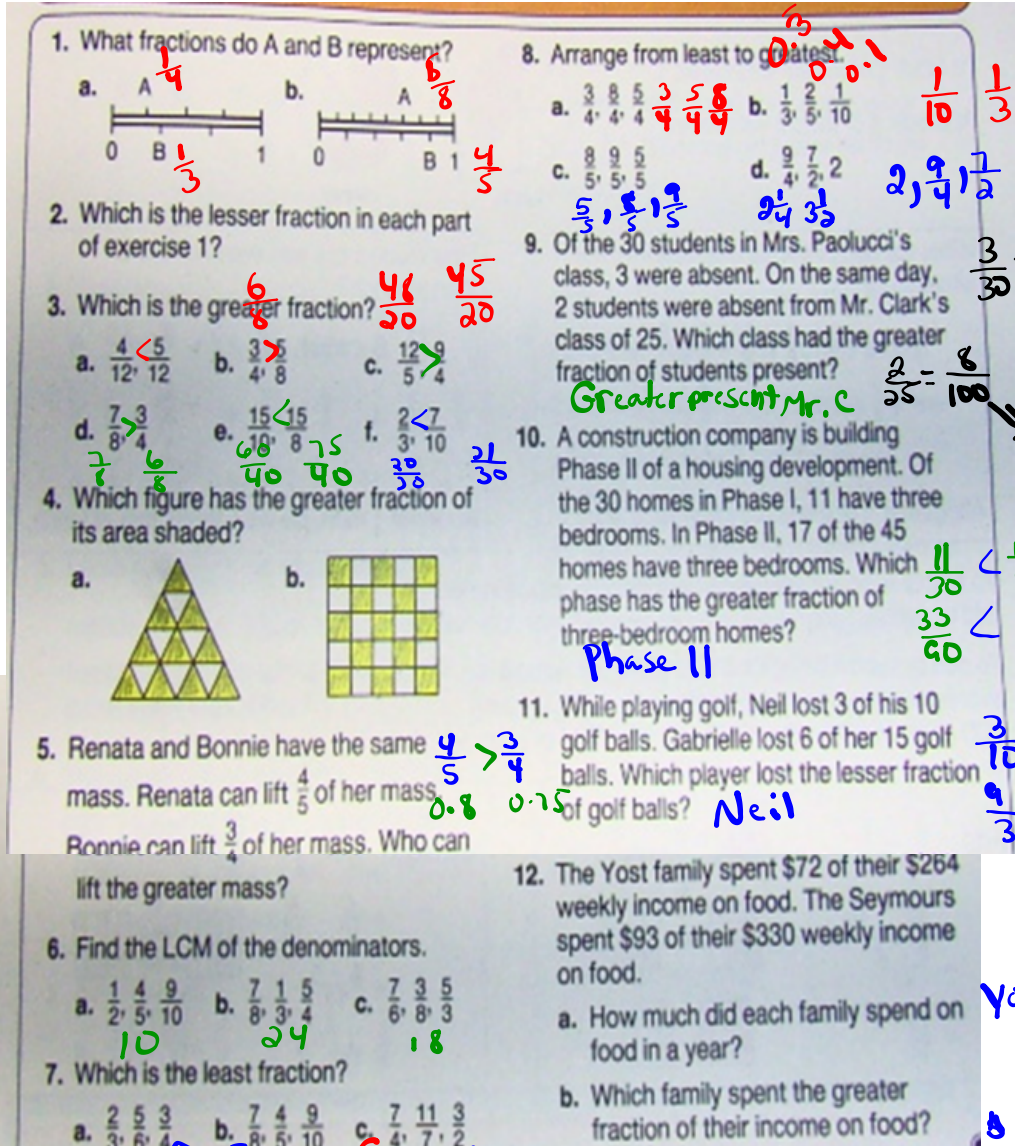 1. What fractions do A and B represent?
a. A 1/4
b. A 6/8
0 B 1/3 1
0 B 1 4/5
2. Which is the lesser fraction in each part
of exercise 1?
6/8 48/20 45/20
3. Which is the greater fraction?
a. 4/12, < 5/12 b. 3/4, > 5/8 c. 12/5, > 9/4
d. 7/8, > 3/4 e. 15/10, < 15/8 f. 2/3, < 7/10
7/8 6/8 60/40 75/40 20/30 21/30
4. Which figure has the greater fraction of
its area shaded?
a. b.
5. Renata and Bonnie have the same 4/5 > 3/4
mass. Renata can lift 4/5 of her mass. 0.8 0.75
Bonnie can lift 3/4 of her mass. Who can
lift the greater mass?
6. Find the LCM of the denominators.
a. 1/2, 4/5, 9/10 b. 7/8, 1/3, 5/4 c. 7/6, 3/8, 5/3
10 24 18
7. Which is the least fraction?
a. 2/3, 5/6, 3/4 b. 7/8, 4/5, 9/10 c. 7/4, 11/7, 3/2
0.3 0.4 0.1
8. Arrange from least to greatest.
a. 3/4, 8/4, 5/4 3/4 5/4 8/4 b. 1/3, 2/5, 1/10 1/10 1/3
c. 8/5, 9/5, 5/5 d. 9/4, 7/2, 2 2, 9/4, 7/2
5/5, 8/5, 9/5 2 1/4 3 1/2
9. Of the 30 students in Mrs. Paolucci's
class, 3 were absent. On the same day, 3/30
2 students were absent from Mr. Clark's
class of 25. Which class had the greater
fraction of students present? 2/25 = 8/100
Greater present Mr. C
10. A construction company is building
Phase II of a housing development. Of
the 30 homes in Phase I, 11 have three
bedrooms. In Phase II, 17 of the 45
homes have three bedrooms. Which 11/30 <
phase has the greater fraction of
three-bedroom homes? 33/90 <
Phase II
11. While playing golf, Neil lost 3 of his 10 3/10
golf balls. Gabrielle lost 6 of her 15 golf
balls. Which player lost the lesser fraction
of golf balls? Neil 9/3
12. The Yost family spent $72 of their $264
weekly income on food. The Seymours
spent $93 of their $330 weekly income
on food.
a. How much did each family spend on
food in a year?
b. Which family spent the greater
fraction of their income on food?